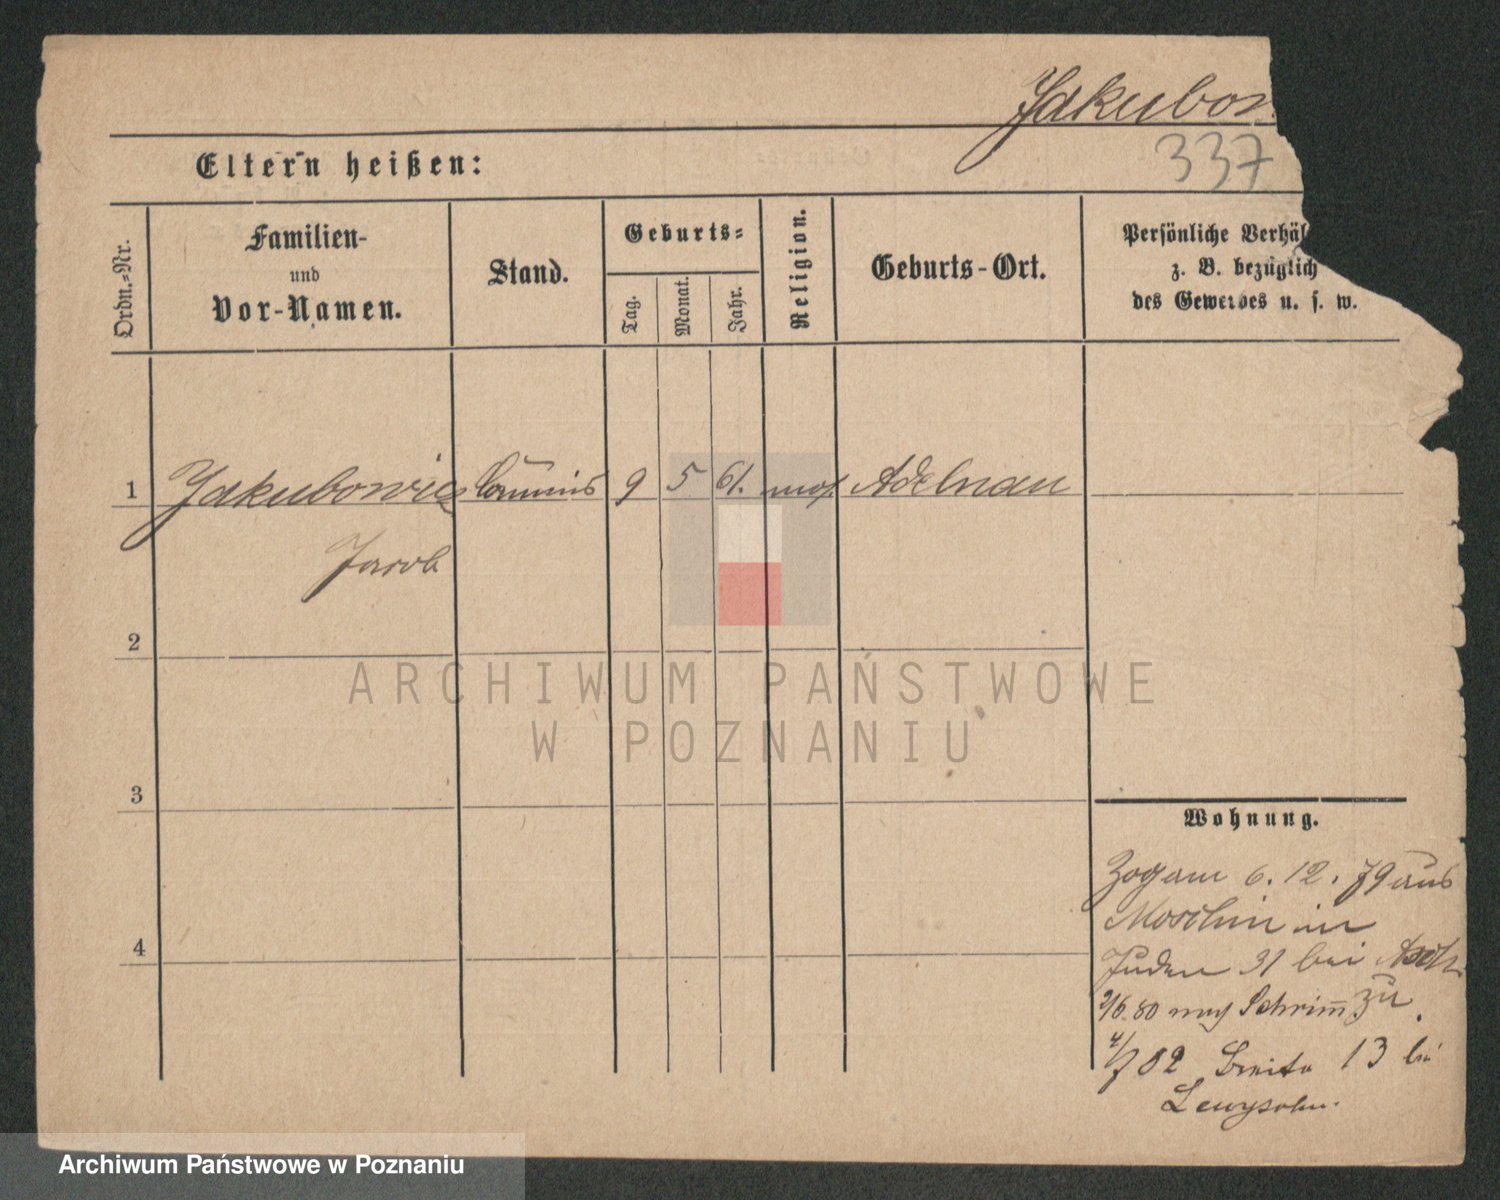 Jakubow
337
Eltern heißen:
Ordn.-Nr.
Familien-
und
Vor-Namen.
Stand.
Geburts-
Tag.
Monat.
Jahr.
Religion.
Geburts-Ort.
Persönliche Verhäl
z. B. bezüglich
des Gewerbes u. s. w.
1 Jakubowicz Commis 9 5 61. mos. Adelnau
Jacob
2
ARCHIWUM PAŃSTWOWE
W POZNANIU
3
Wohnung.
Zog am 6. 12. 79 aus
Moschin in
4
Juden 31 bei Asch
2/6 80 nach Schrimm zu
4/7 82 Breite 13 bei
Lewysohn.
Archiwum Państwowe w Poznaniu